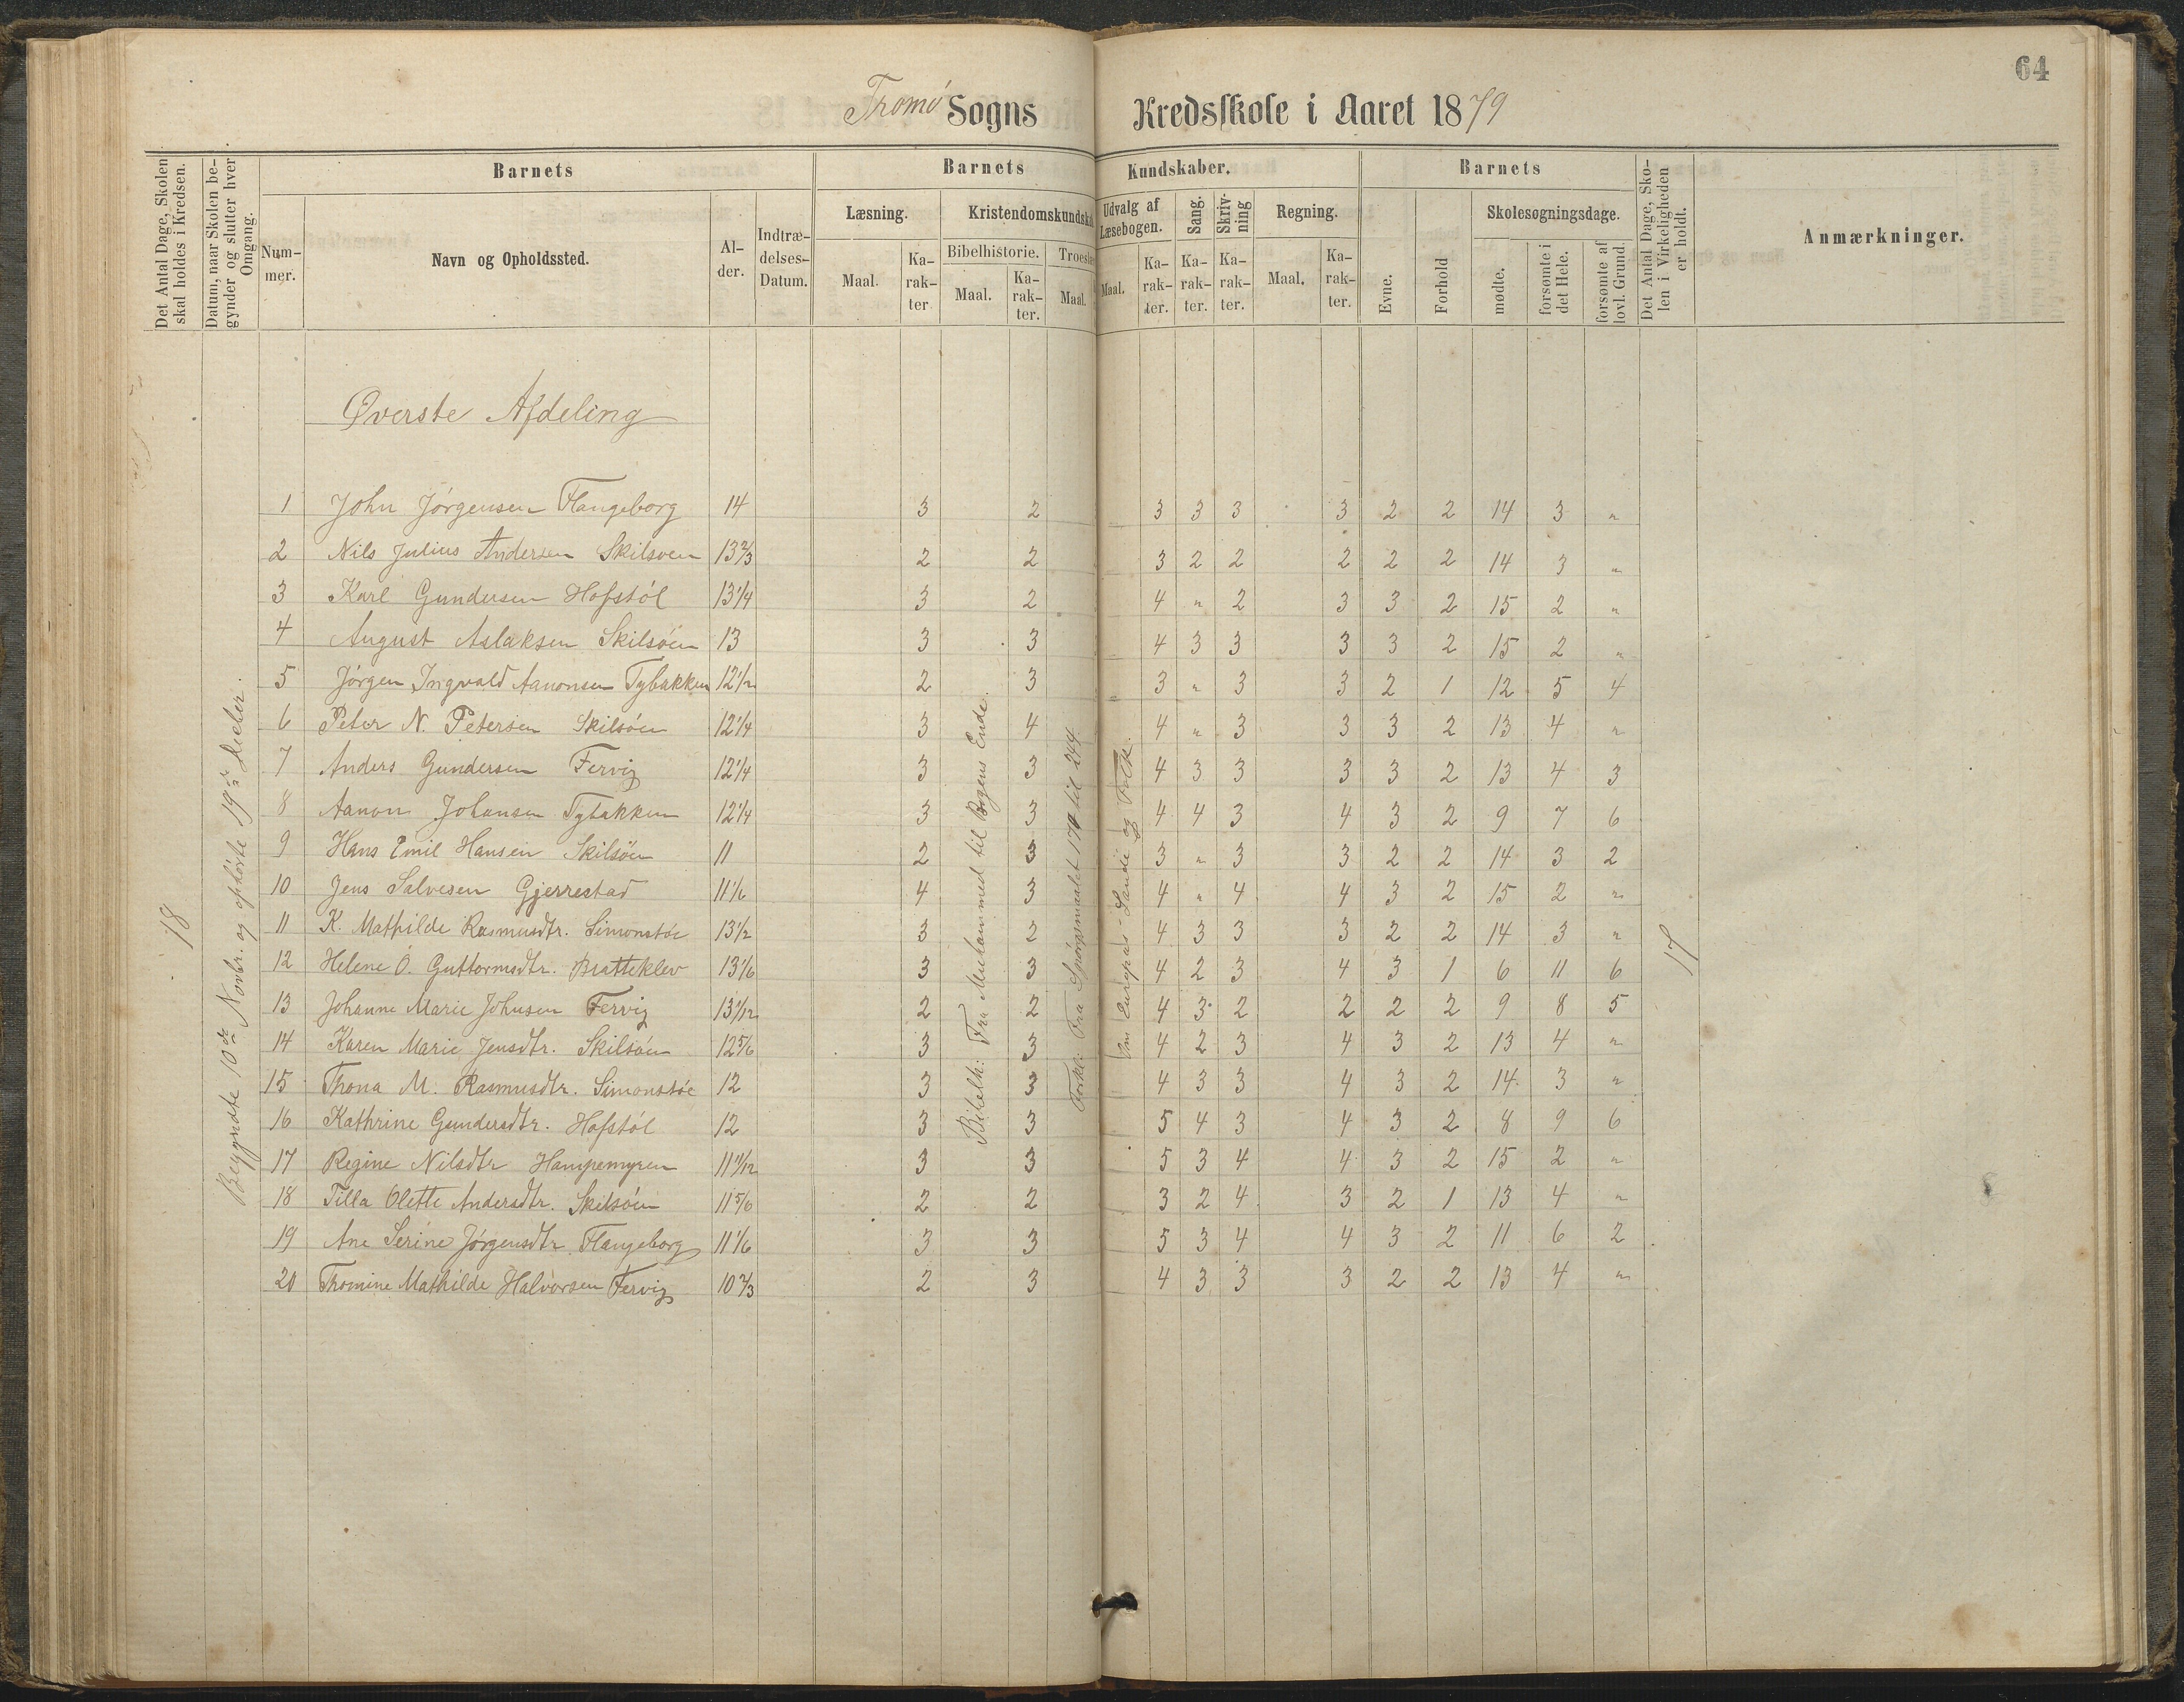 64
Tromø Sogns Kredsskole i Aaret 1879
Det Antal Dage, Skolen skal holdes i Kredsen.
Datum, naar Skolen begynder og slutter hver Omgang.
Barnets
Barnets Kundskaber.
Barnets
Det Antal Dage, Skolen i Virkeligheden er holdt.
Anmærkninger.
Nummer.
Navn og Opholdssted.
Alder.
Indtrædelses-Datum.
Læsning.
Kristendomskundska
Udvalg af Læsebogen.
Sang.
Skrivning
Regning.
Evne.
Forhold
Skolesøgningsdage.
Bibelhistorie.
Troeslær
Maal. Karakter Maal. Karakter. Maal. Maal. Karakter. Karakter. Karakter. Maal. Karakter.
mødte. forsømte i det Hele. forsømte af lovl. Grund.
Øverste Afdeling
1 John Jörgensen Flangeborg 14 3 2 3 3 3 3 2 2 14 3 "
2 Nils Julius Andersen Skilsöen 13 2/3 2 2 3 2 2 2 2 2 14 3 "
3 Karl Gundersen Hofstöl 13 1/4 3 2 4 " 2 3 3 2 15 2 "
4 August Aslaksen Skilsöen 13 3 3 4 3 3 3 3 2 15 2 "
5 Jörgen Ingvald Aanonsen Tybakken 12 1/2 2 3 3 " 3 3 2 1 12 5 4
6 Peter N. Petersen Skilsöen 12 1/4 3 4 4 " 3 3 3 2 13 4 "
7 Anders Gundersen Fervig 12 1/4 3 3 4 3 3 3 3 2 13 4 3
8 Aanon Johansen Tybakken 12 1/4 3 3 4 4 3 4 3 2 9 7 6
9 Hans Emil Hansen Skilsöen 11 2 3 3 " 3 3 2 2 14 3 2
10 Jens Salvesen Gjerrestad 11 1/6 4 3 4 " 4 4 3 2 15 2 "
11 K. Mathilde Rasmusdtr. Simonstöe 13 1/2 3 2 4 3 3 3 2 2 14 3 "
12 Helene O. Guttormsdtr. Bratteklev 13 1/6 3 3 4 2 3 4 3 1 6 11 6
13 Johanne Marie Johnsen Fervig 13 1/12 2 2 4 3 2 2 2 2 9 8 5
14 Karen Marie Jensdtr. Skilsöen 12 5/6 3 3 4 2 3 4 3 2 13 4 "
15 Thona M. Rasmusdtr. Simonstöe 12 3 3 4 3 3 4 3 2 14 3 "
16 Kathrine Gundersdtr. Hofstöl 12 3 3 5 4 3 4 3 2 8 9 6
17 Regine Nilsdtr Hampemyren 11 11/12 3 3 5 3 4 4 3 2 15 2 "
18 Tilla Olette Andersdtr. Skilsöen 11 5/6 2 2 3 2 4 3 2 1 13 4 "
19 Ane Serine Jörgensdtr Flangeborg 11 1/6 3 3 5 3 4 4 3 2 11 6 2
20 Thomine Mathilde Halvorsen Fervig 10 2/3 2 3 4 3 3 3 2 2 13 4 "
18
Begyndte 10de Novbr. og ophörte 19de
Bibelh: Fra Muhammed til Bogens Ende.
Forkl: Fra Spörgsmaalet 170 til 244.
Om Europas Lande og Folk.
17